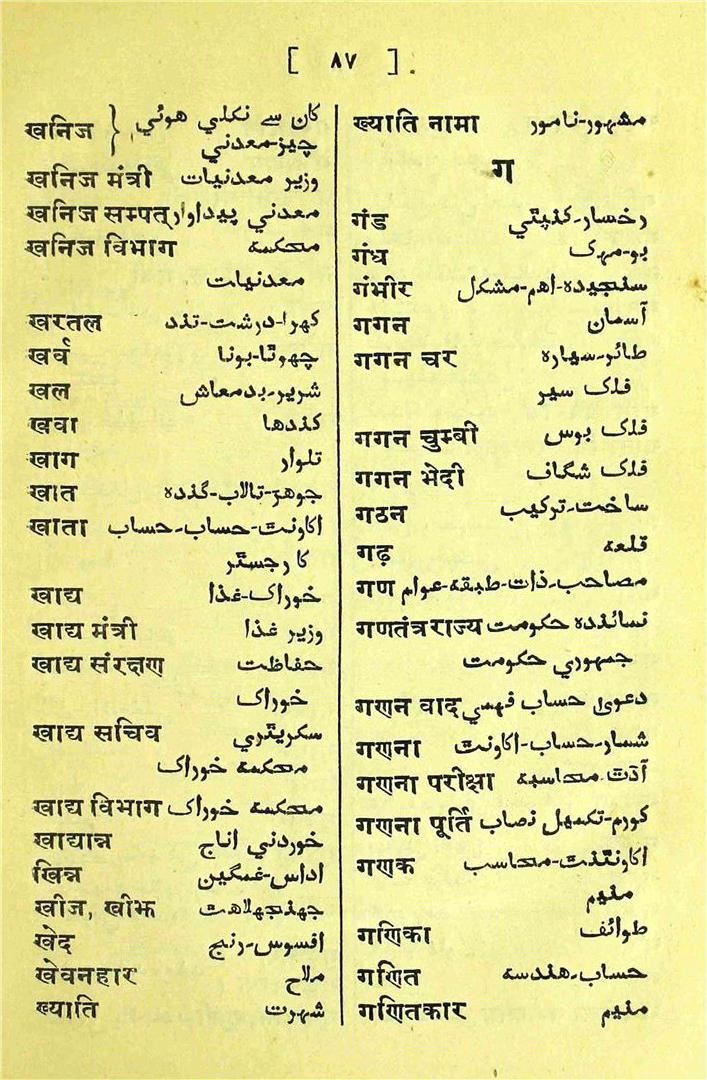 [ ۸۷ ]
खनिज } کان سے نکلي هوئي
چيز-معدني
खनिज मंत्री وزير معدنيات
खनिज सम्पत् معدني پيداوار
खनिज विभाग محکمه
معدنيات
खरतल کهرا-درشت-تند
खर्व چهوٹا-بونا
खल شرير-بدمعاش
खवा کندها
खाग تلوار
खात جوهڑ-تالاب-گڈه
खाता اکاونٹ-حساب-حساب
کا رجسٹر
खाद्य خوراک-غذا
खाद्य मंत्री وزير غذا
खाद्य संरक्षण حفاظت
خوراک
खाद्य सचिव سکريٹري
محکمه خوراک
खाद्य विभाग محکمه خوراک
खाद्यान्न خوردني اناج
खिन्न اداس-غمگين
खीज, खीझ جهنجهلاهٹ
खेद افسوس-رنج
खेवनहार ملاح
ख्याति شهرت
ख्याति नामा مشهور-نامور
ग
गंड رخسار-کنپٹي
गंध بو-مهک
गंभीर سنجيده-اهم-مشکل
गगन آسمان
गगन चर طائر-سياره
فلک سير
गगन चुम्बी فلک بوس
गगन भेदी فلک شگاف
गठन ساخت-ترکيب
गढ़ قلعه
गण مصاحب-ذات-طبقه-عوام
गणतंत्र राज्य نمائنده حکومت
جمهوري حکومت
गणन वाद دعویٰ حساب فهمي
गणना شمار-حساب-اکاونٹ
गणना परीक्षा آڈٹ-محاسبه
गणना पूर्ति کورم-تکميل نصاب
गणक اکاونٹنٹ-محاسب
منيم
गणिका طوائف
गणित حساب-هندسه
गणितकार منيم